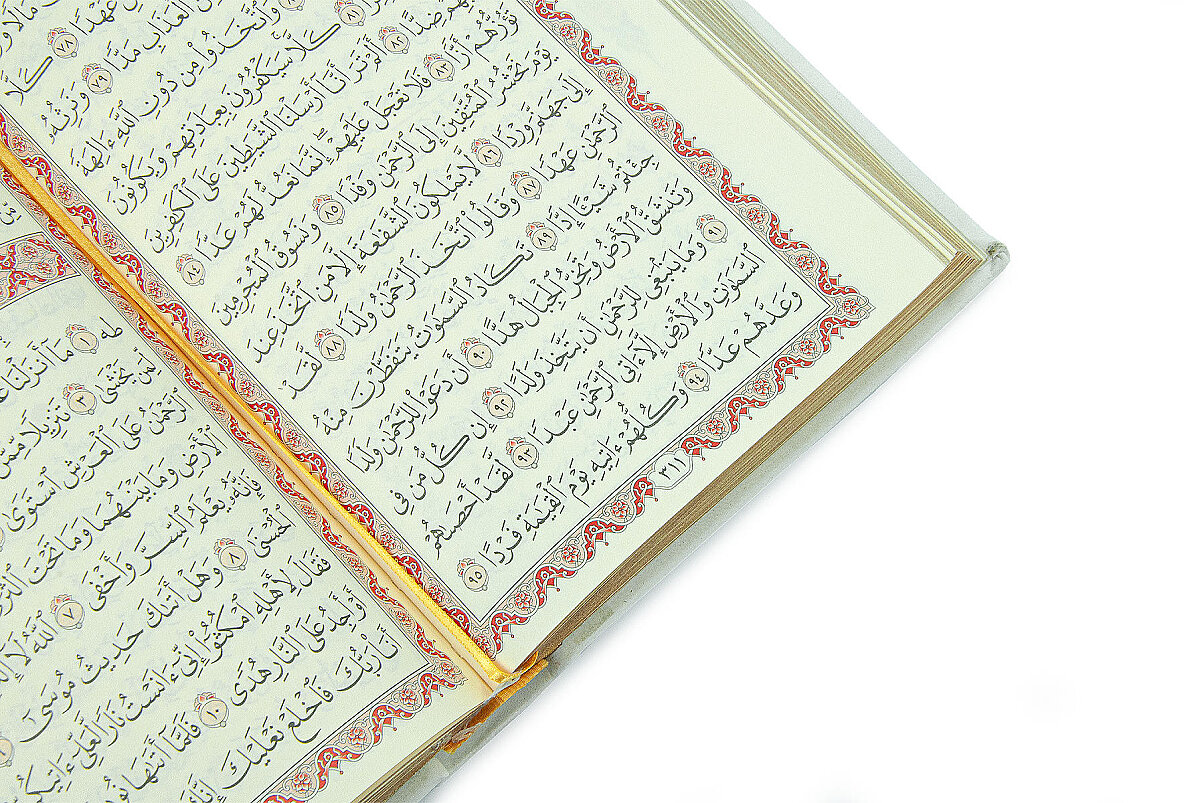 عَهْدًا ٧٨ كَلَّا
ٱلْعَذَابِ مَدًّا ٧٩ وَنَرِثُهُۥ
وَٱتَّخَذُوا۟ مِن دُونِ ٱللَّهِ ءَالِهَةً
٨١ كَلَّا سَيَكْفُرُونَ بِعِبَادَتِهِمْ وَيَكُونُونَ
ضِدًّا ٨٢ أَلَمْ تَرَ أَنَّآ أَرْسَلْنَا ٱلشَّيَٰطِينَ عَلَى ٱلْكَٰفِرِينَ
تَؤُزُّهُمْ أَزًّا ٨٣ فَلَا تَعْجَلْ عَلَيْهِمْ ۖ إِنَّمَا نَعُدُّ لَهُمْ عَدًّا ٨٤
يَوْمَ نَحْشُرُ ٱلْمُتَّقِينَ إِلَى ٱلرَّحْمَٰنِ وَفْدًا ٨٥ وَنَسُوقُ ٱلْمُجْرِمِينَ
إِلَىٰ جَهَنَّمَ وِرْدًا ٨٦ لَّا يَمْلِكُونَ ٱلشَّفَٰعَةَ إِلَّا مَنِ ٱتَّخَذَ عِندَ
ٱلرَّحْمَٰنِ عَهْدًا ٨٧ وَقَالُوا۟ ٱتَّخَذَ ٱلرَّحْمَٰنُ وَلَدًا ٨٨ لَّقَدْ
جِئْتُمْ شَيْـًٔا إِدًّا ٨٩ تَكَادُ ٱلسَّمَٰوَٰتُ يَتَفَطَّرْنَ مِنْهُ
وَتَنشَقُّ ٱلْأَرْضُ وَتَخِرُّ ٱلْجِبَالُ هَدًّا ٩٠ أَن دَعَوْا۟ لِلرَّحْمَٰنِ وَلَدًا
٩١ وَمَا يَنۢبَغِى لِلرَّحْمَٰنِ أَن يَتَّخِذَ وَلَدًا ٩٢ إِن كُلُّ مَن فِى
ٱلسَّمَٰوَٰتِ وَٱلْأَرْضِ إِلَّآ ءَاتِى ٱلرَّحْمَٰنِ عَبْدًا ٩٣ لَّقَدْ أَحْصَىٰهُمْ
وَعَدَّهُمْ عَدًّا ٩٤ وَكُلُّهُمْ ءَاتِيهِ يَوْمَ ٱلْقِيَٰمَةِ فَرْدًا ٩٥
٣١١
طه ١ مَآ أَنزَلْنَا
لِّمَن يَخْشَىٰ ٣ تَنزِيلًا مِّمَّنْ
ٱلرَّحْمَٰنُ عَلَى ٱلْعَرْشِ ٱسْتَوَىٰ
ٱلْأَرْضِ وَمَا بَيْنَهُمَا وَمَا تَحْتَ ٱلثَّرَىٰ
فَإِنَّهُۥ يَعْلَمُ ٱلسِّرَّ وَأَخْفَى ٧ ٱللَّهُ لَآ
ٱلْحُسْنَىٰ ٨ وَهَلْ أَتَىٰكَ حَدِيثُ مُوسَىٰٓ
فَقَالَ لِأَهْلِهِ ٱمْكُثُوٓا۟ إِنِّىٓ ءَانَسْتُ نَارًا لَّعَلِّىٓ ءَاتِيكُم
أَوْ أَجِدُ عَلَى ٱلنَّارِ هُدًى ١٠ فَلَمَّآ أَتَىٰهَا
أَنَا۠ رَبُّكَ فَٱخْلَعْ نَعْلَيْكَ ۖ إِنَّكَ